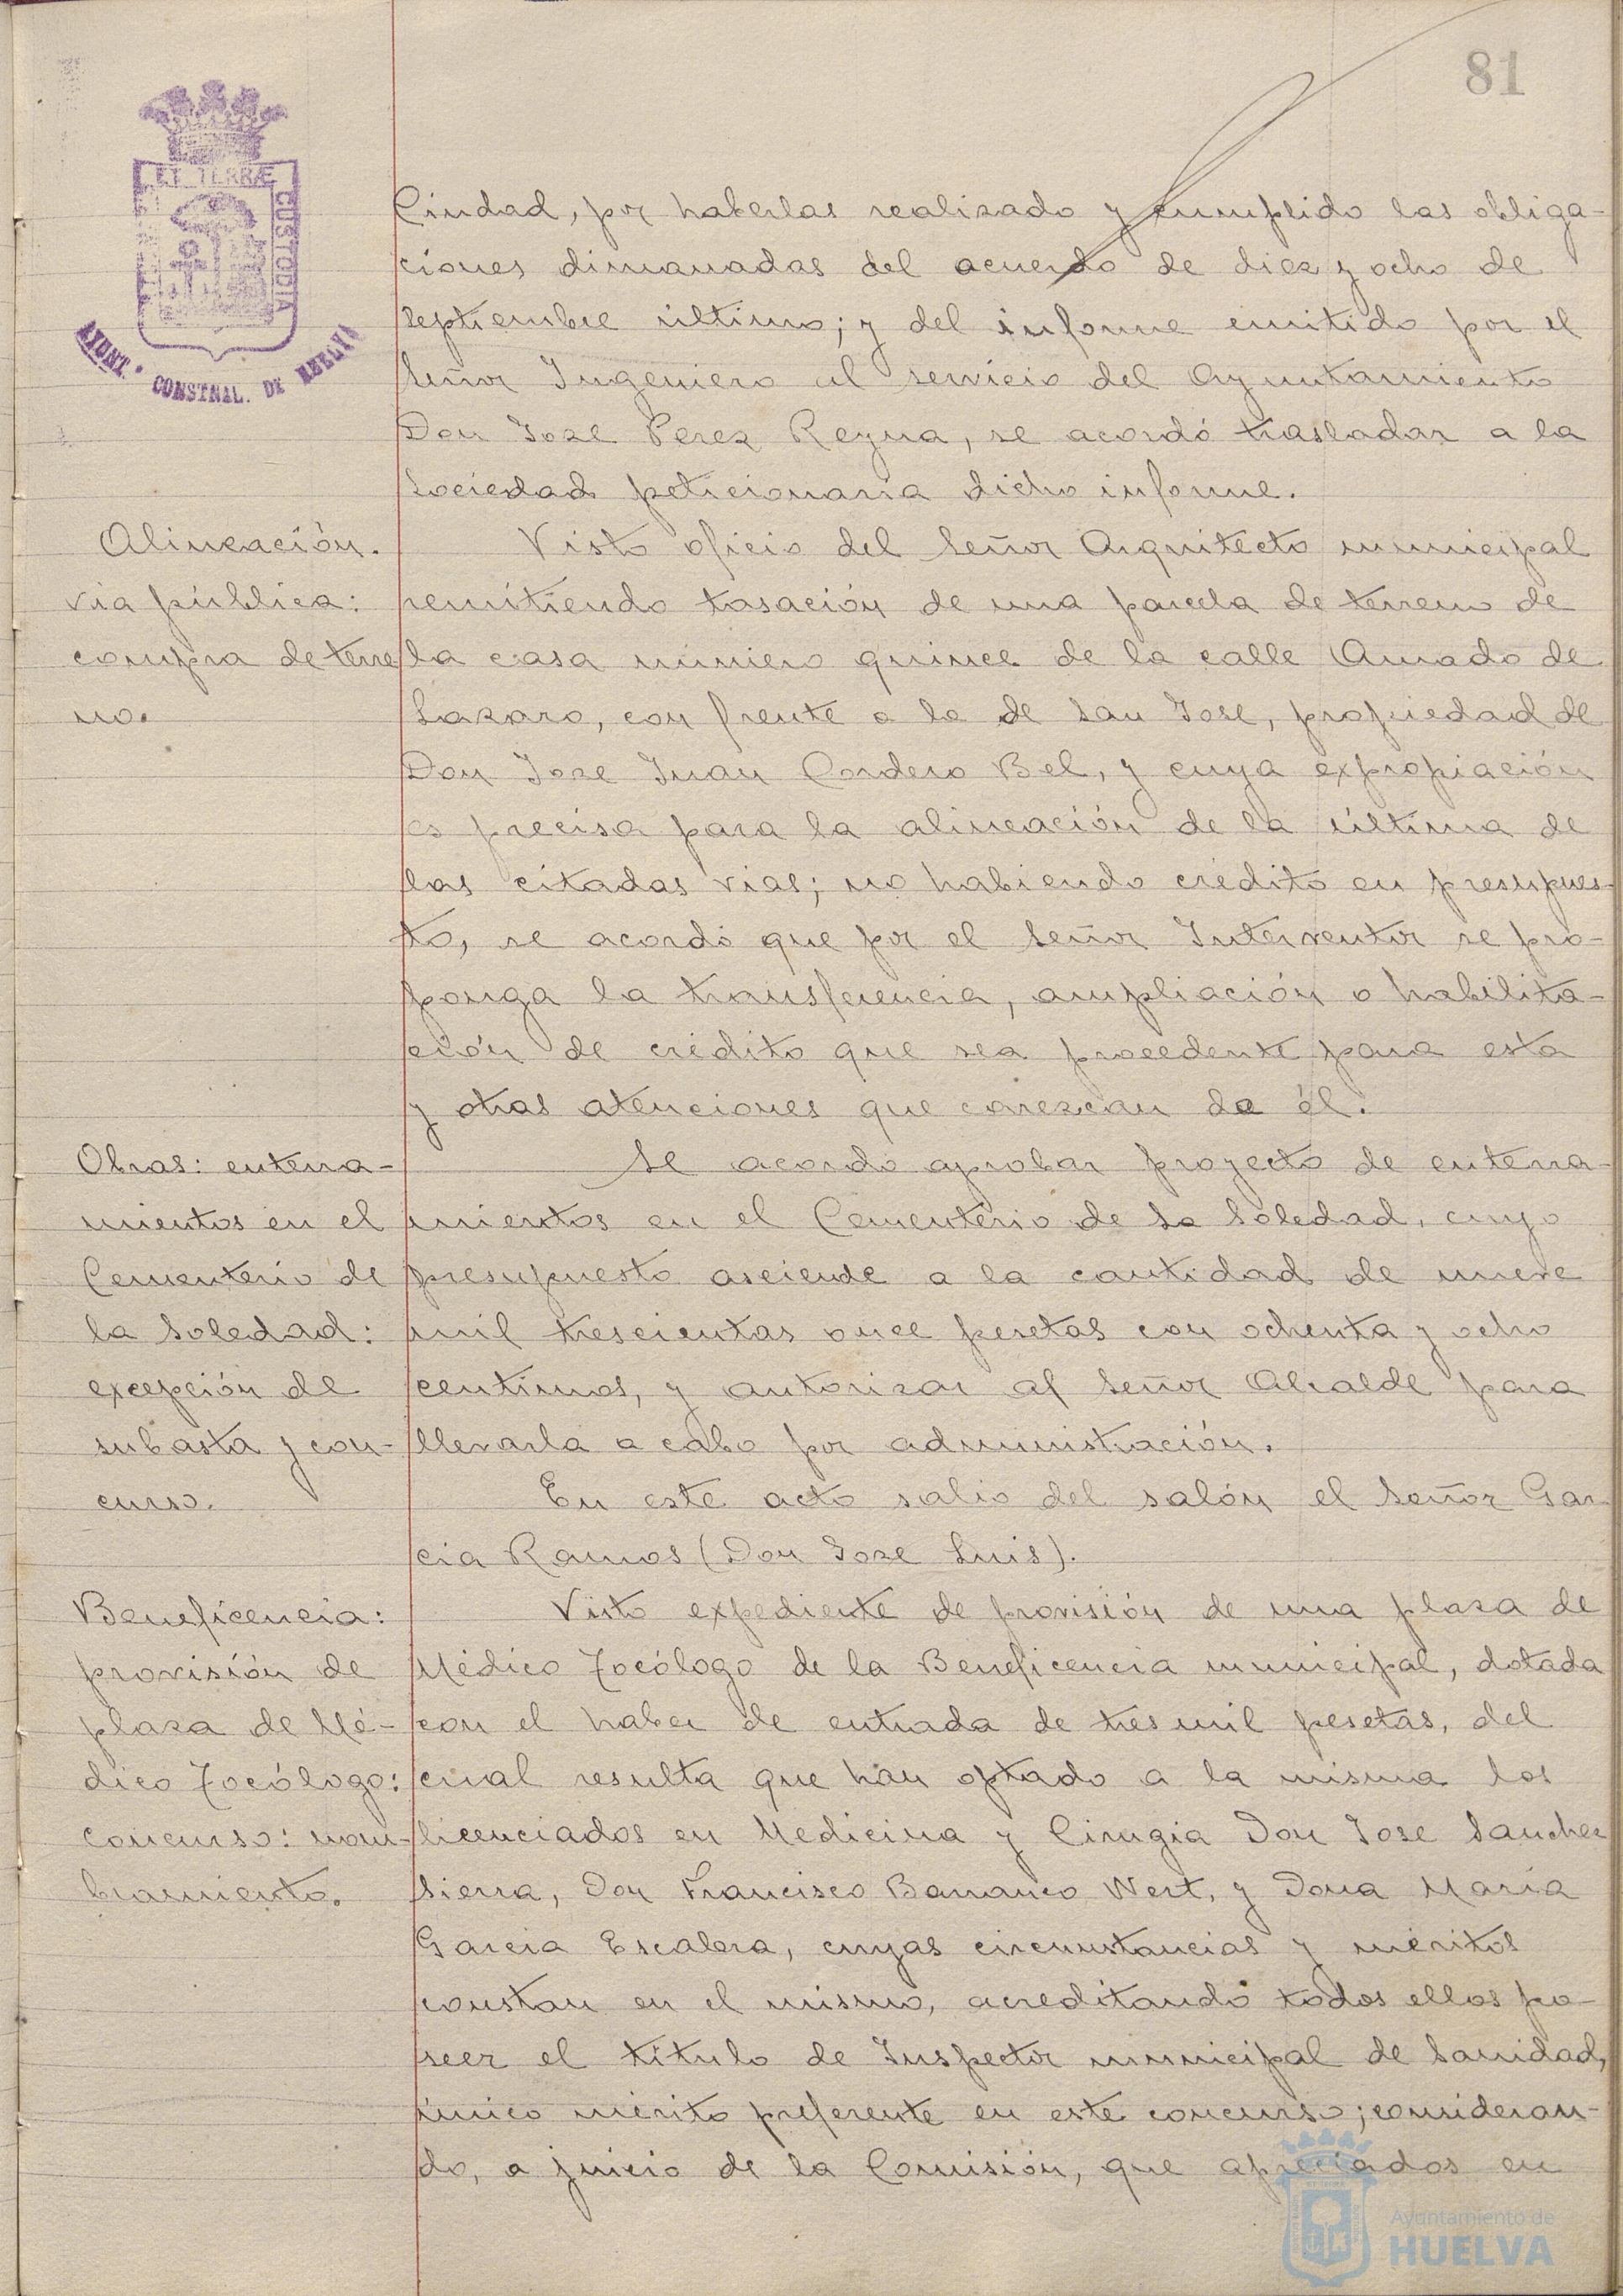 81
ET TERRÆ
CUSTODIA
AYUNT. CONSTNAL. DE HUELVA
Ciudad, por haberlas realizado y cumplido las obliga-
ciones dimanadas del acuerdo de diez y ocho de
septiembre último; y del informe emitido por el
Señor Ingeniero al servicio del Ayuntamiento
Don Jose Perez Reyna, se acordó trasladar a la
Sociedad peticionaria dicho informe.
Alineación.
via pública:
compra de terre
no.
Visto oficio del Señor Arquitecto municipal
remitiendo tasación de una parcela de terreno de
la casa número quince de la calle Amado de
Lazaro, con frente a la de San Jose, propiedad de
Don Jose Juan Cordero Bel, y cuya expropiación
es precisa para la alineación de la última de
las citadas vias; no habiendo crédito en presupues-
to, se acordó que por el Señor Interventor se pro-
ponga la transferencia, ampliación o habilita-
ción de crédito que sea procedente para esta
y otras atenciones que carezcan de él.
Obras: enterra-
mientos en el
Cementerio de
la Soledad:
excepción de
subasta y con-
curso.
Se acordó aprobar proyecto de enterra-
mientos en el Cementerio de la Soledad, cuyo
presupuesto asciende a la cantidad de nueve
mil trescientas once pesetas con ochenta y ocho
centimos, y autorizar al Señor Alcalde para
llevarla a cabo por administración.
En este acto salio del salón el Señor Gar
cia Ramos (Don Jose Luis).
Beneficencia:
provisión de
plaza de Mé-
dico Tocólogo:
concurso: nom-
bramiento.
Visto expediente de provisión de una plaza de
Médico Tocólogo de la Beneficencia municipal, dotada
con el haber de entrada de tres mil pesetas, del
cual resulta que han optado a la misma los
licenciados en Medicina y Cirugia Don Jose Sanchez
Sierra, Don Francisco Barranco Wert, y Dona Maria
Garcia Escalera, cuyas circunstancias y méritos
constan en el mismo, acreditando todos ellos po-
seer el título de Inspector municipal de Sanidad,
único mérito preferente en este concurso; consideran-
do, a juicio de la Comisión, que apreciados en
Ayuntamiento de
HUELVA